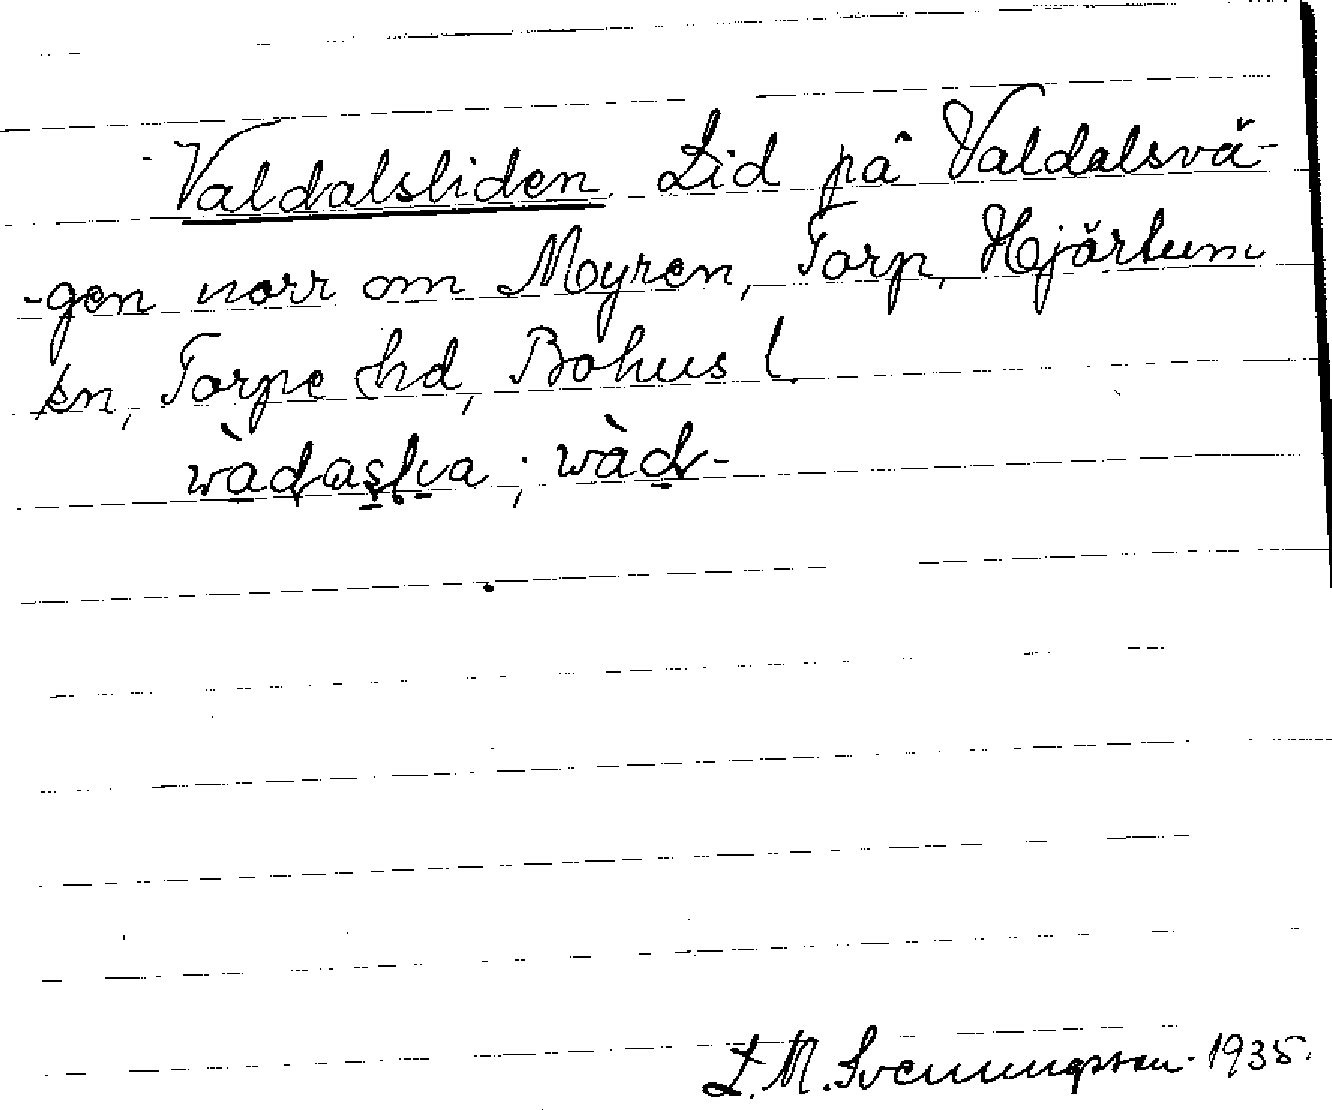 Valdalsliden. Lid på Valdalsvä-
-gen norr om Myren, Torp, Hjärtum
sn, Torpe hd, Bohus l.
L. M. Svenungsson. 1935.